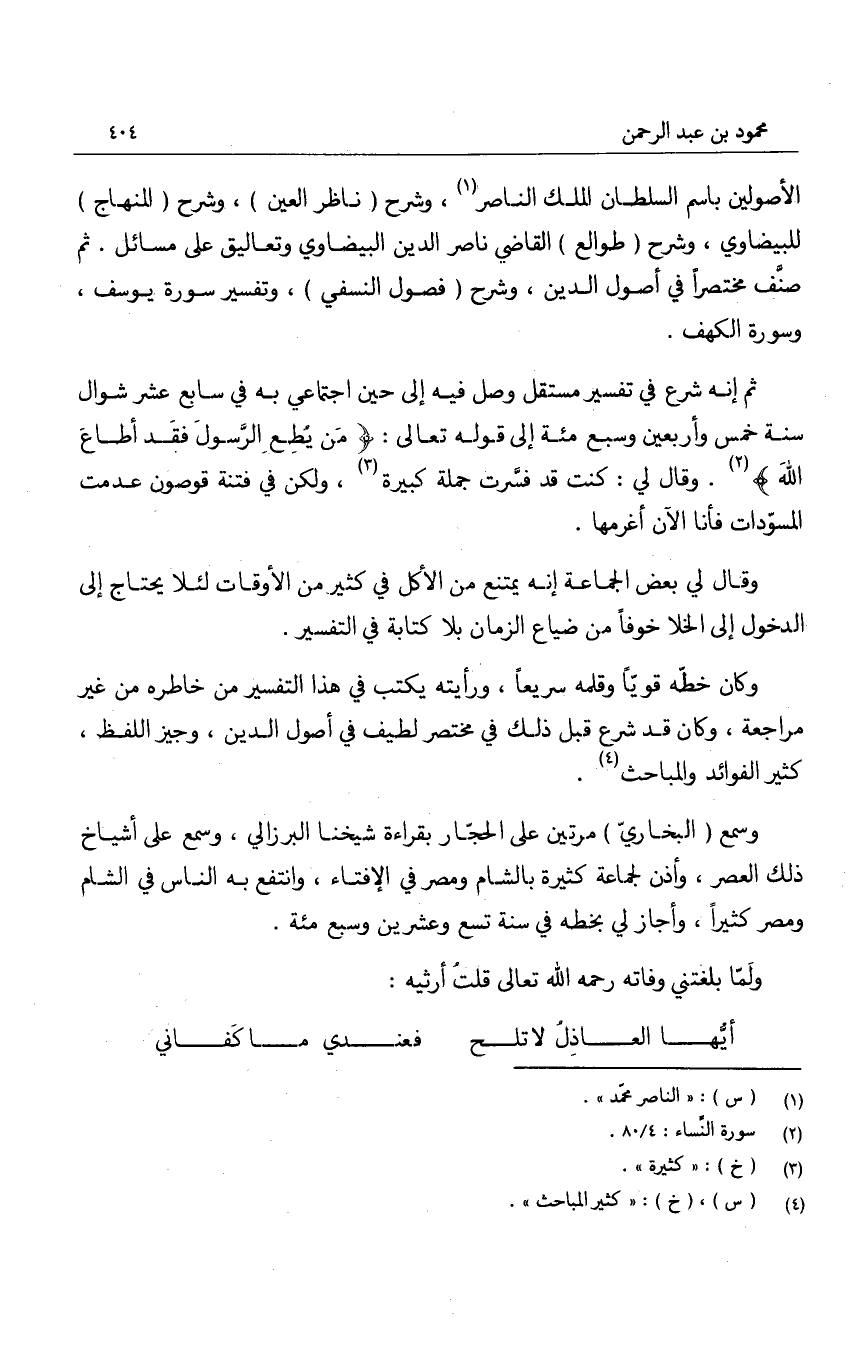 محمود بن عبد الرحمن ٤٠٤
الأصولين باسم السلطان الملك الناصر(١) ، وشرح ( ناظر العين ) ، وشرح ( المنهاج )
للبيضاوي ، وشرح ( طوالع ) القاضي ناصر الدين البيضاوي وتعاليق على مسائل . ثم
صنَّف مختصراً في أصول الدين ، وشرح ( فصول النسفي ) ، وتفسير سورة يوسف ،
وسورة الكهف .
ثم إنه شرع في تفسير مستقل وصل فيه إلى حين اجتماعي به في سابع عشر شوال
سنة خمس وأربعين وسبع مئة إلى قوله تعالى : ﴿ مَن يُطِعِ الرَّسولَ فقَد أطاعَ
اللّهَ ﴾(٢) . وقال لي : كنت قد فسَّرت جملة كبيرة(٣) ، ولكن في فتنة قوصون عدمت
المسوّدات فأنا الآن أغرمها .
وقال لي بعض الجماعة إنه يمتنع من الأكل في كثير من الأوقات لئلا يحتاج إلى
الدخول إلى الخلا خوفاً من ضياع الزمان بلا كتابة في التفسير .
وكان خطّه قويّاً وقلمه سريعاً ، ورأيته يكتب في هذا التفسير من خاطره من غير
مراجعة ، وكان قد شرع قبل ذلك في مختصر لطيف في أصول الدين ، وجيز اللفظ ،
كثير الفوائد والمباحث(٤) .
وسمع ( البخاريّ ) مرتين على الحجّار بقراءة شيخنا البرزالي ، وسمع على أشياخ
ذلك العصر ، وأذن لجماعة كثيرة بالشام ومصر في الإفتاء ، وانتفع به الناس في الشام
ومصر كثيراً ، وأجاز لي بخطه في سنة تسع وعشرين وسبع مئة .
ولَمّا بلغتني وفاته رحمه الله تعالى قلتُ أرثيه :
أيُّها العاذِلُ لا تلح فعندي ما كَفاني
(١) ( س ) : « الناصر محمّد » .
(٢) سورة النِّساء : ٨٠/٤ .
(٣) ( خ ) : « كثيرة » .
(٤) ( س ) ، ( خ ) : « كثير المباحث » .